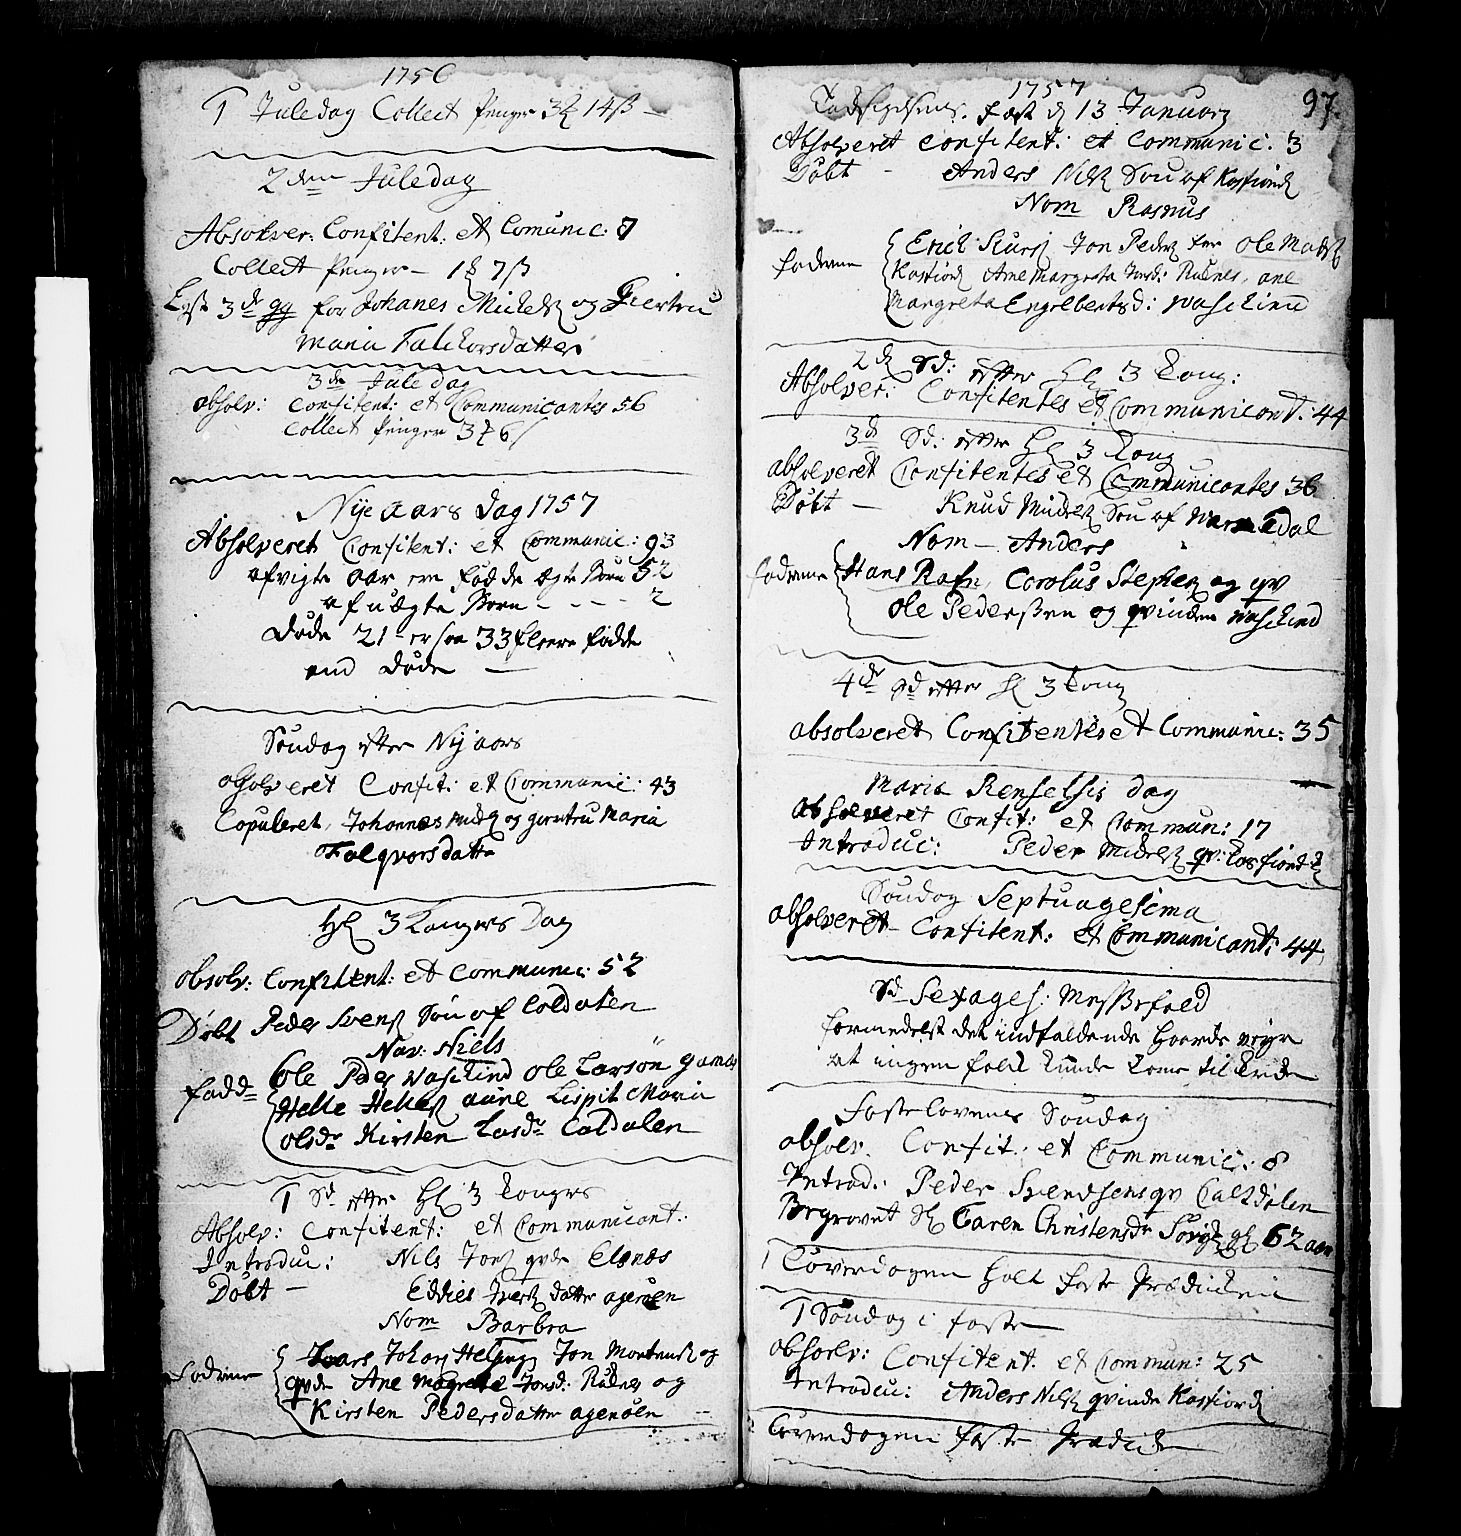 1756
1 Juledag Collect Penger 3 14 ß
2den Juledag
Absolver: Confitent: et Comunic: 7
Collect Penger – 1 7 ß
Lyst 3de gg for Johanes Michels og Giertru
Maria Falckorsdatter
3de Juledag
absolv: Confitent: et Communicantes 56
Collect Penger 3 6
Nyeaars Dag 1757
Absolveret Confitent: et Communic: 93
afvigte aar ere fødde ægte Børn 52
af uægte Børn - - - - 2
døde 21 – er saa 33 fleere fødde
end døde —
Søndag efter Nyaars
absolveret Confit: et Communic: 43
Copuleret, Johannes og giertru Maria
Falqvorsdatter
Hl 3 Kongers Dag
absolv: Confitent: et Communic: 52
Døbt Peder Svens Søn af Coldalen
Nav: Niels
fadd Ole Peders Waschind Ole Larsøn
Helle Helles anne Lispit Maria
olsdr Kirsten Larsdr Caldalen
1 Sd efter Hl 3 Konger
Absolv: Confitent: et Communicant:
Introduc: Nils Jons qvde Elsnæs
Døbt – Eddies datter agerøen
Nom Barbra
fadderne Johan Jon Mortens og
qvde Ane Magrete Jonsd: Rødnes og
Kirsten Pedersdatter agerøen
1757
97.
fæst d 13 January
Absolveret confitent: et Communic: 3
Døbt - Anders Nils Søn af Kosfiord
Nom Rasmus
fadderne Erich Jon Peders Ole Mads
Kosfiord Ane Margreta Jonsd: Rødnes, ane
Margreta Engelbertsd: Waschind
2de Sd: efter Hl 3 Kong:
Absolver: Confitentes et Communicant: 44
3de Sd: efter Hl 3 Kong
absolveret Confitentes et Communicantes 36
Døbt — Knud Søn af
Nom — Anders
fadderne Hans Rafn, Carolus og qv
Ole Pederssen og qvinden Waschind
4de Sd efter Hl 3 Kong
absolveret Confitentes et Communic: 35
Maria Renselsis dag
absolveret Confit: et Commun: 17
Introduc: Peder qv: Kosfiord
Søndag Septuagesima
absolveret Confitent: et Communicant: 44
Sd Sexages: Messefald
formedelst det indfaldende haarde veyr
at ingen folck kunde kome til Kircke
Fastelavens Søndag
absolv. Confit: et Communic: 8
Introd: Peder Svendsens qv Calddalen
Begravet Sl Karen Christensdr gl 62 aar
1 Toverdagen holt faste Prædicken
1 Søndag i faste
absolv: Confitent. et Commun: 25
Introduc: Anders Nils qvinde Kosfiord
2 Toverdagen faste Prædick